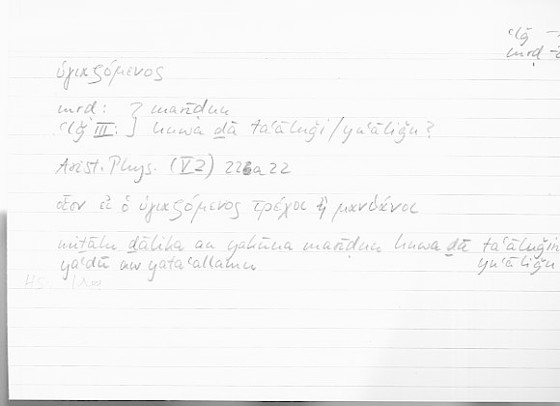 ʿlǧ
mrḍ
ὑγιαζόμενος
mrḍ: } marīḍun
ʿlǧ III: } huwa ḏā taʿāluǧi/yuʿāliǧu?
Arist. Phys. (V 2) 226a22
οἷον εἰ ὁ ὑγιαζόμενος τρέχοι ἢ μανθάνοι
miṯālu ḏālika an yakūna marīḍun huwa ḏā taʿāluǧin
yaʿdū aw yataʿallamu yuʿāliǧu